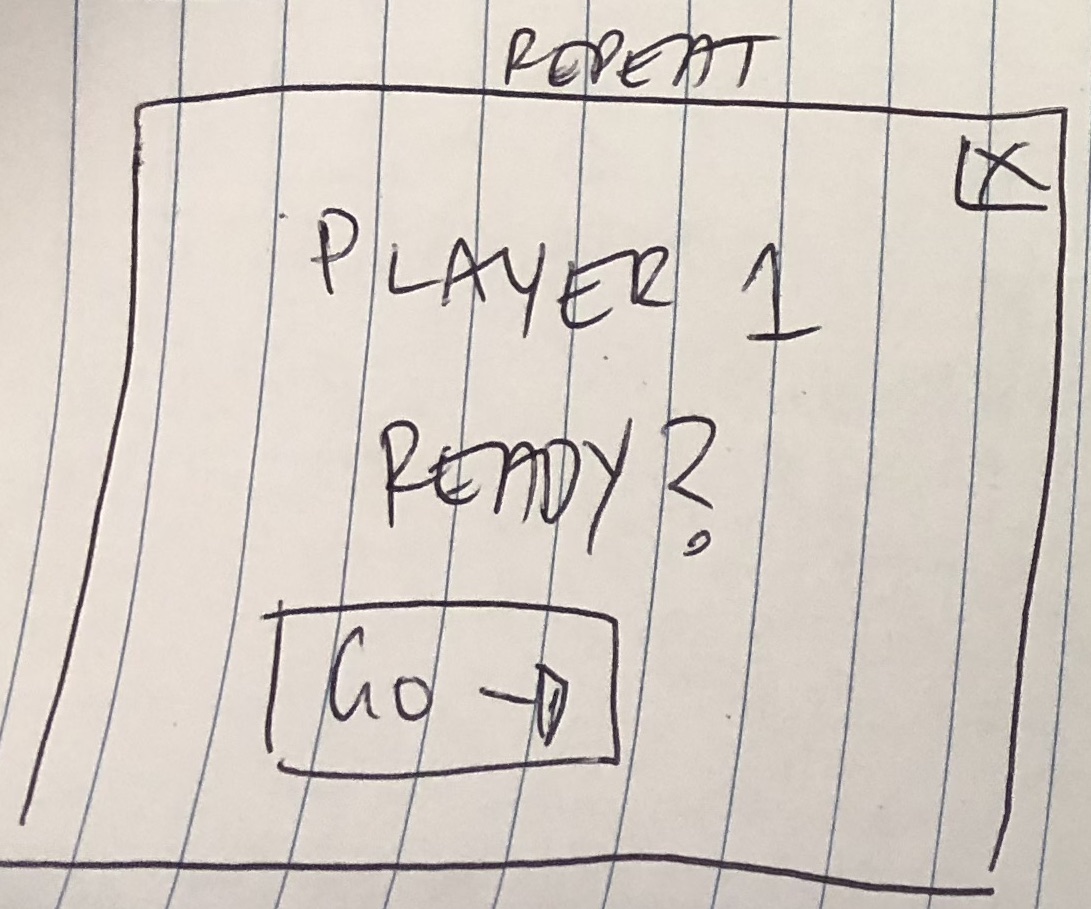 REPEAT
X
PLAYER 1
READY?
GO →